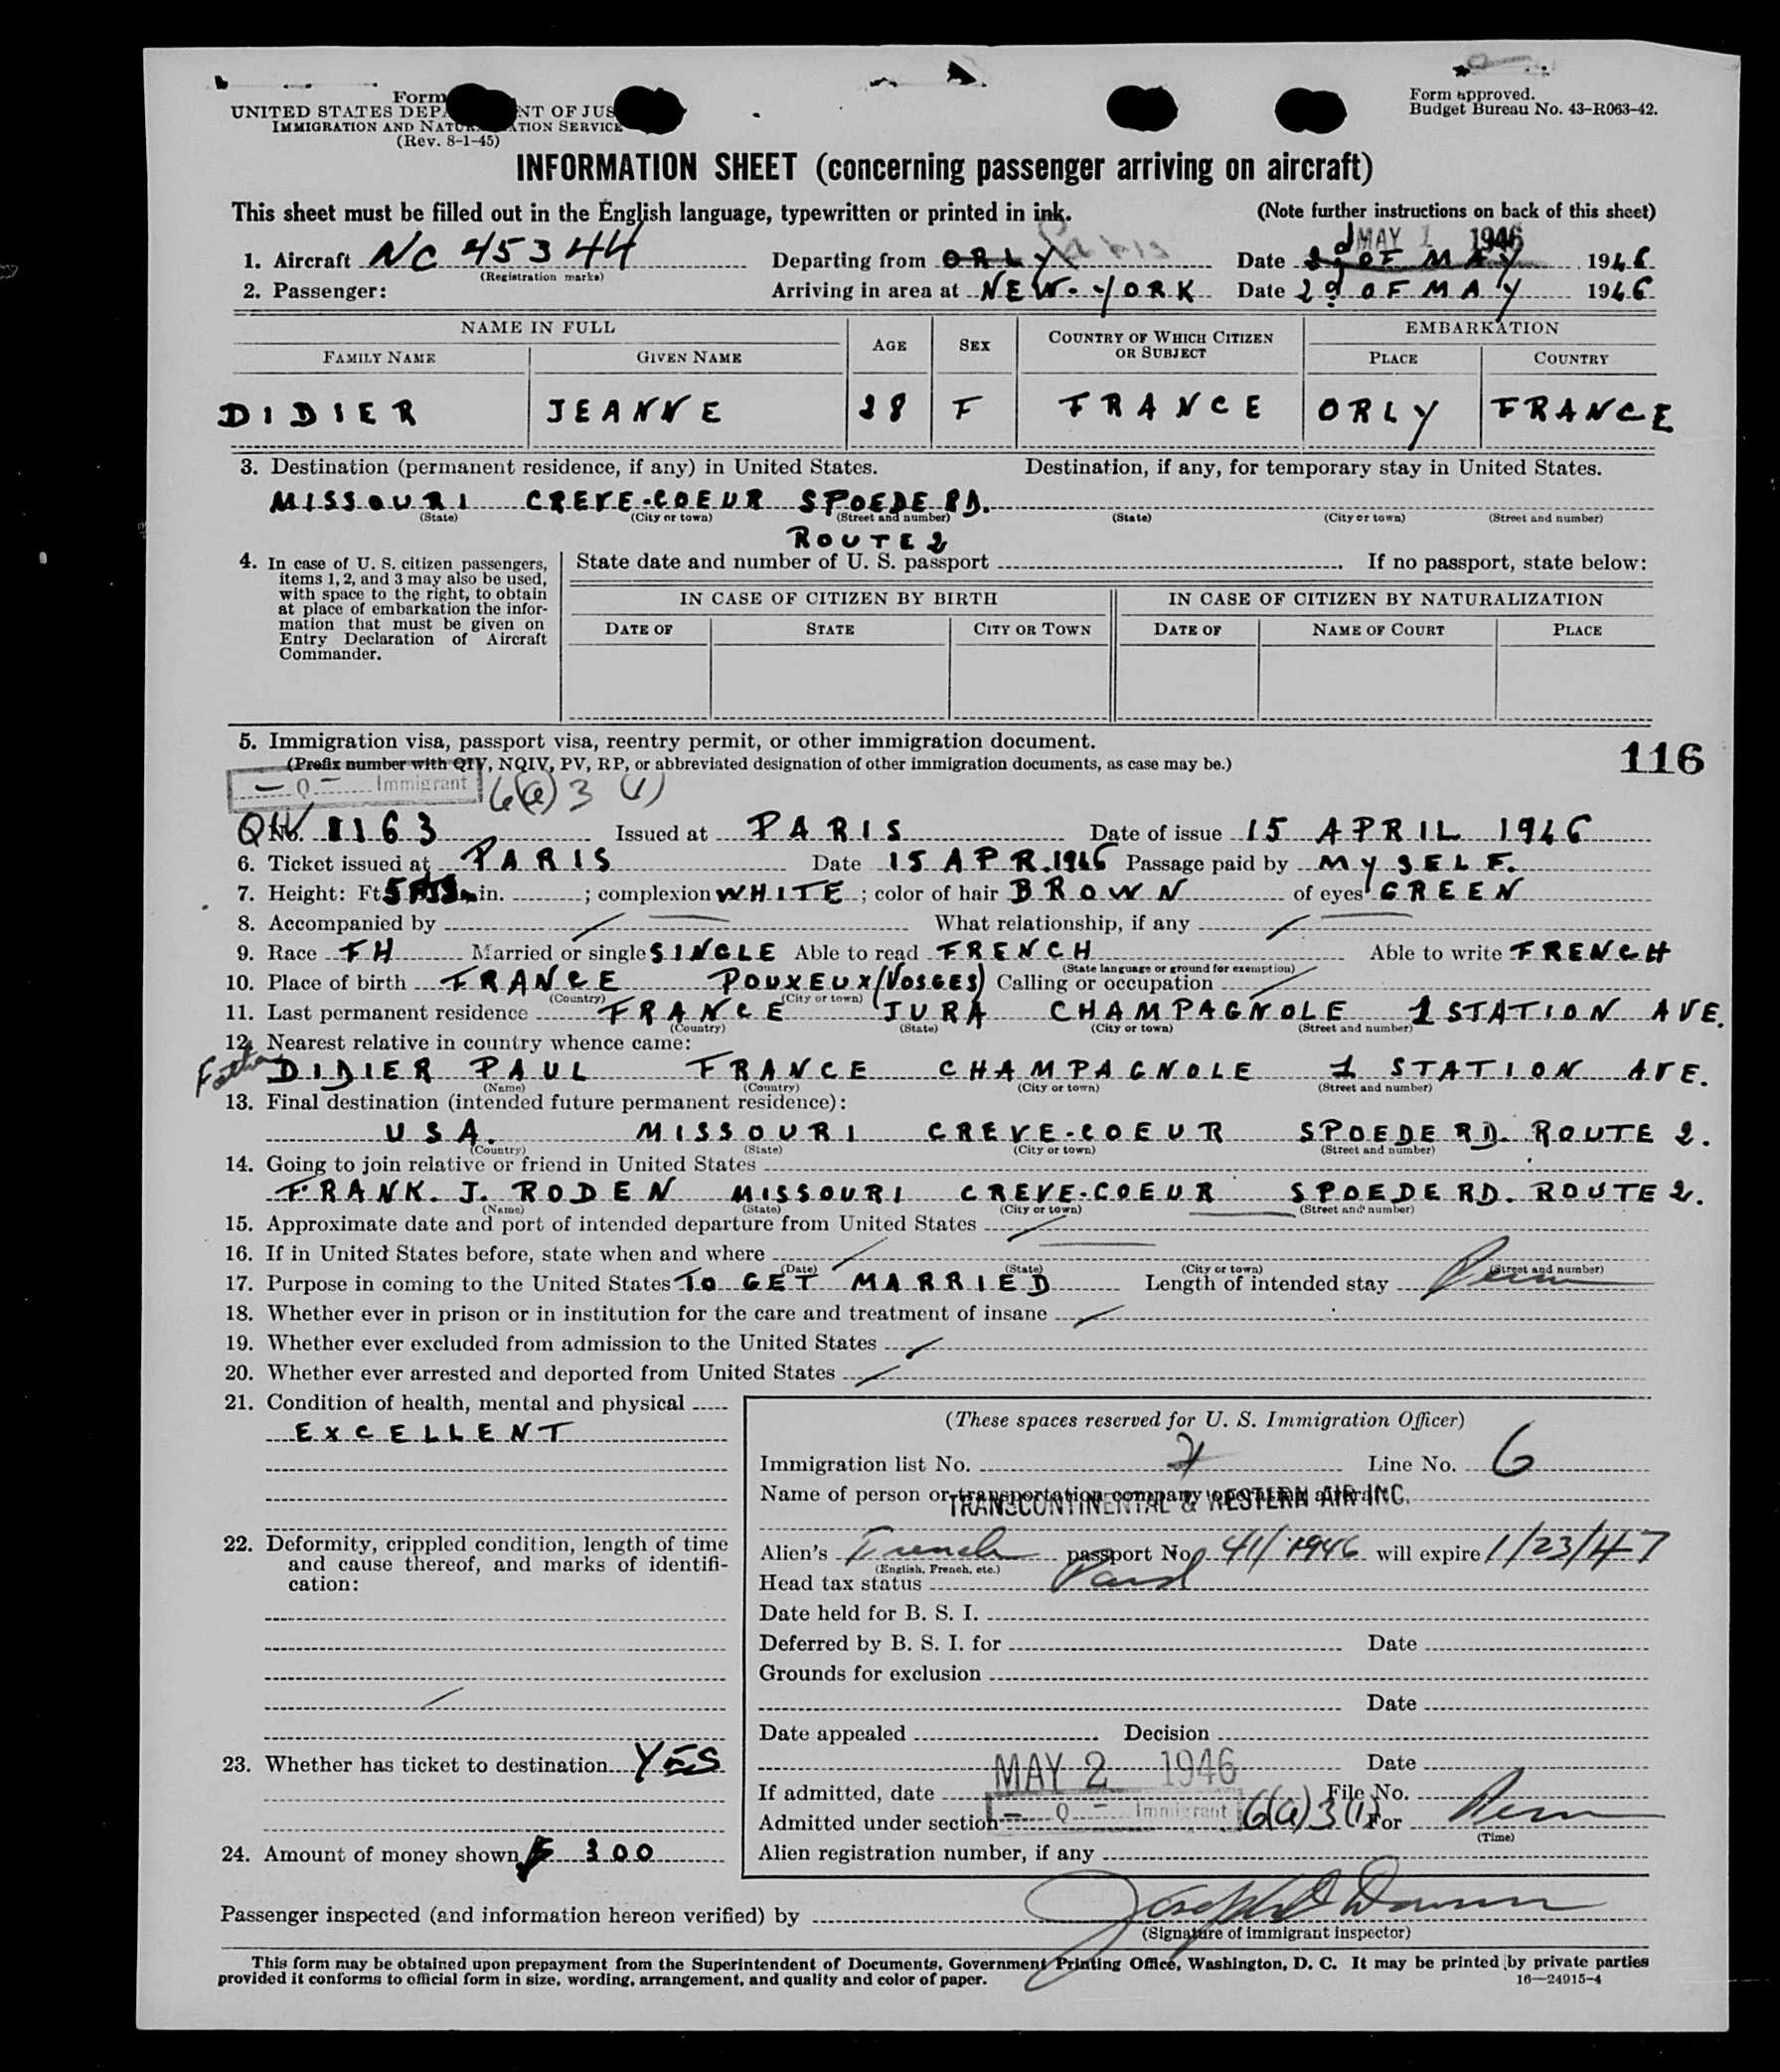 Form
UNITED STATES DEPA NT OF JUS
IMMIGRATION AND NATUR ATION SERVICE
(Rev. 8-1-45)
Form approved.
Budget Bureau No. 43-R063-42.
INFORMATION SHEET (concerning passenger arriving on aircraft)
This sheet must be filled out in the English language, typewritten or printed in ink. (Note further instructions on back of this sheet)
MAY 1 1946
1. Aircraft NC 45344 Departing from ORLY Paris Date 2d OF MAY 1946
(Registration marks)
2. Passenger: Arriving in area at NEW-YORK Date 2d OF MAY 1946
NAME IN FULL AGE SEX COUNTRY OF WHICH CITIZEN OR SUBJECT EMBARKATION
FAMILY NAME GIVEN NAME PLACE COUNTRY
DIDIER JEANNE 28 F FRANCE ORLY FRANCE
3. Destination (permanent residence, if any) in United States. Destination, if any, for temporary stay in United States.
MISSOURI CREVE-COEUR SPOEDE RD.
(State) (City or town) (Street and number) (State) (City or town) (Street and number)
ROUTE 2
4. In case of U. S. citizen passengers, items 1, 2, and 3 may also be used, with space to the right, to obtain at place of embarkation the information that must be given on Entry Declaration of Aircraft Commander.
State date and number of U. S. passport . If no passport, state below:
IN CASE OF CITIZEN BY BIRTH IN CASE OF CITIZEN BY NATURALIZATION
DATE OF STATE CITY OR TOWN DATE OF NAME OF COURT PLACE
5. Immigration visa, passport visa, reentry permit, or other immigration document.
(Prefix number with QIV, NQIV, PV, RP, or abbreviated designation of other immigration documents, as case may be.)
116
— Q — Immigrant 6(a) 3 (1)
QIV No. 1163 Issued at PARIS Date of issue 15 APRIL 1946
6. Ticket issued at PARIS Date 15 APR. 1946 Passage paid by MYSELF.
7. Height: Ft. 5 in. ; complexion WHITE ; color of hair BROWN of eyes GREEN
8. Accompanied by What relationship, if any
9. Race FH Married or single SINGLE Able to read FRENCH Able to write FRENCH
(State language or ground for exemption)
10. Place of birth FRANCE POUXEUX (VOSGES) Calling or occupation
(Country) (City or town)
11. Last permanent residence FRANCE JURA CHAMPAGNOLE 1 STATION AVE.
(Country) (State) (City or town) (Street and number)
12. Nearest relative in country whence came:
Father DIDIER PAUL FRANCE CHAMPAGNOLE 1 STATION AVE.
(Name) (Country) (City or town) (Street and number)
13. Final destination (intended future permanent residence):
USA. MISSOURI CREVE-COEUR SPOEDE RD. ROUTE 2.
(Country) (State) (City or town) (Street and number)
14. Going to join relative or friend in United States
FRANK. J. RODEN MISSOURI CREVE-COEUR SPOEDE RD. ROUTE 2.
(Name) (State) (City or town) (Street and number)
15. Approximate date and port of intended departure from United States
16. If in United States before, state when and where
(Date) (State) (City or town) (Street and number)
17. Purpose in coming to the United States TO GET MARRIED Length of intended stay Perm
18. Whether ever in prison or in institution for the care and treatment of insane
19. Whether ever excluded from admission to the United States
20. Whether ever arrested and deported from United States
21. Condition of health, mental and physical
EXCELLENT
22. Deformity, crippled condition, length of time and cause thereof, and marks of identification:
23. Whether has ticket to destination YES
24. Amount of money shown $ 300
(These spaces reserved for U. S. Immigration Officer)
Immigration list No. 7 Line No. 6
Name of person or transportation company
TRANSCONTINENTAL & WESTERN AIR INC.
Alien's French passport No. 41/1946 will expire 1/23/47
(English, French, etc.)
Head tax status Paid
Date held for B. S. I.
Deferred by B. S. I. for Date
Grounds for exclusion
Date
Date appealed Decision
Date
If admitted, date MAY 2 1946 File No.
Admitted under section — Q — Immigrant 6(a) 3 (1) For Perm
(Time)
Alien registration number, if any
Passenger inspected (and information hereon verified) by
(Signature of immigrant inspector)
This form may be obtained upon prepayment from the Superintendent of Documents, Government Printing Office, Washington, D. C. It may be printed by private parties
provided it conforms to official form in size, wording, arrangement, and quality and color of paper. 16—24915-4